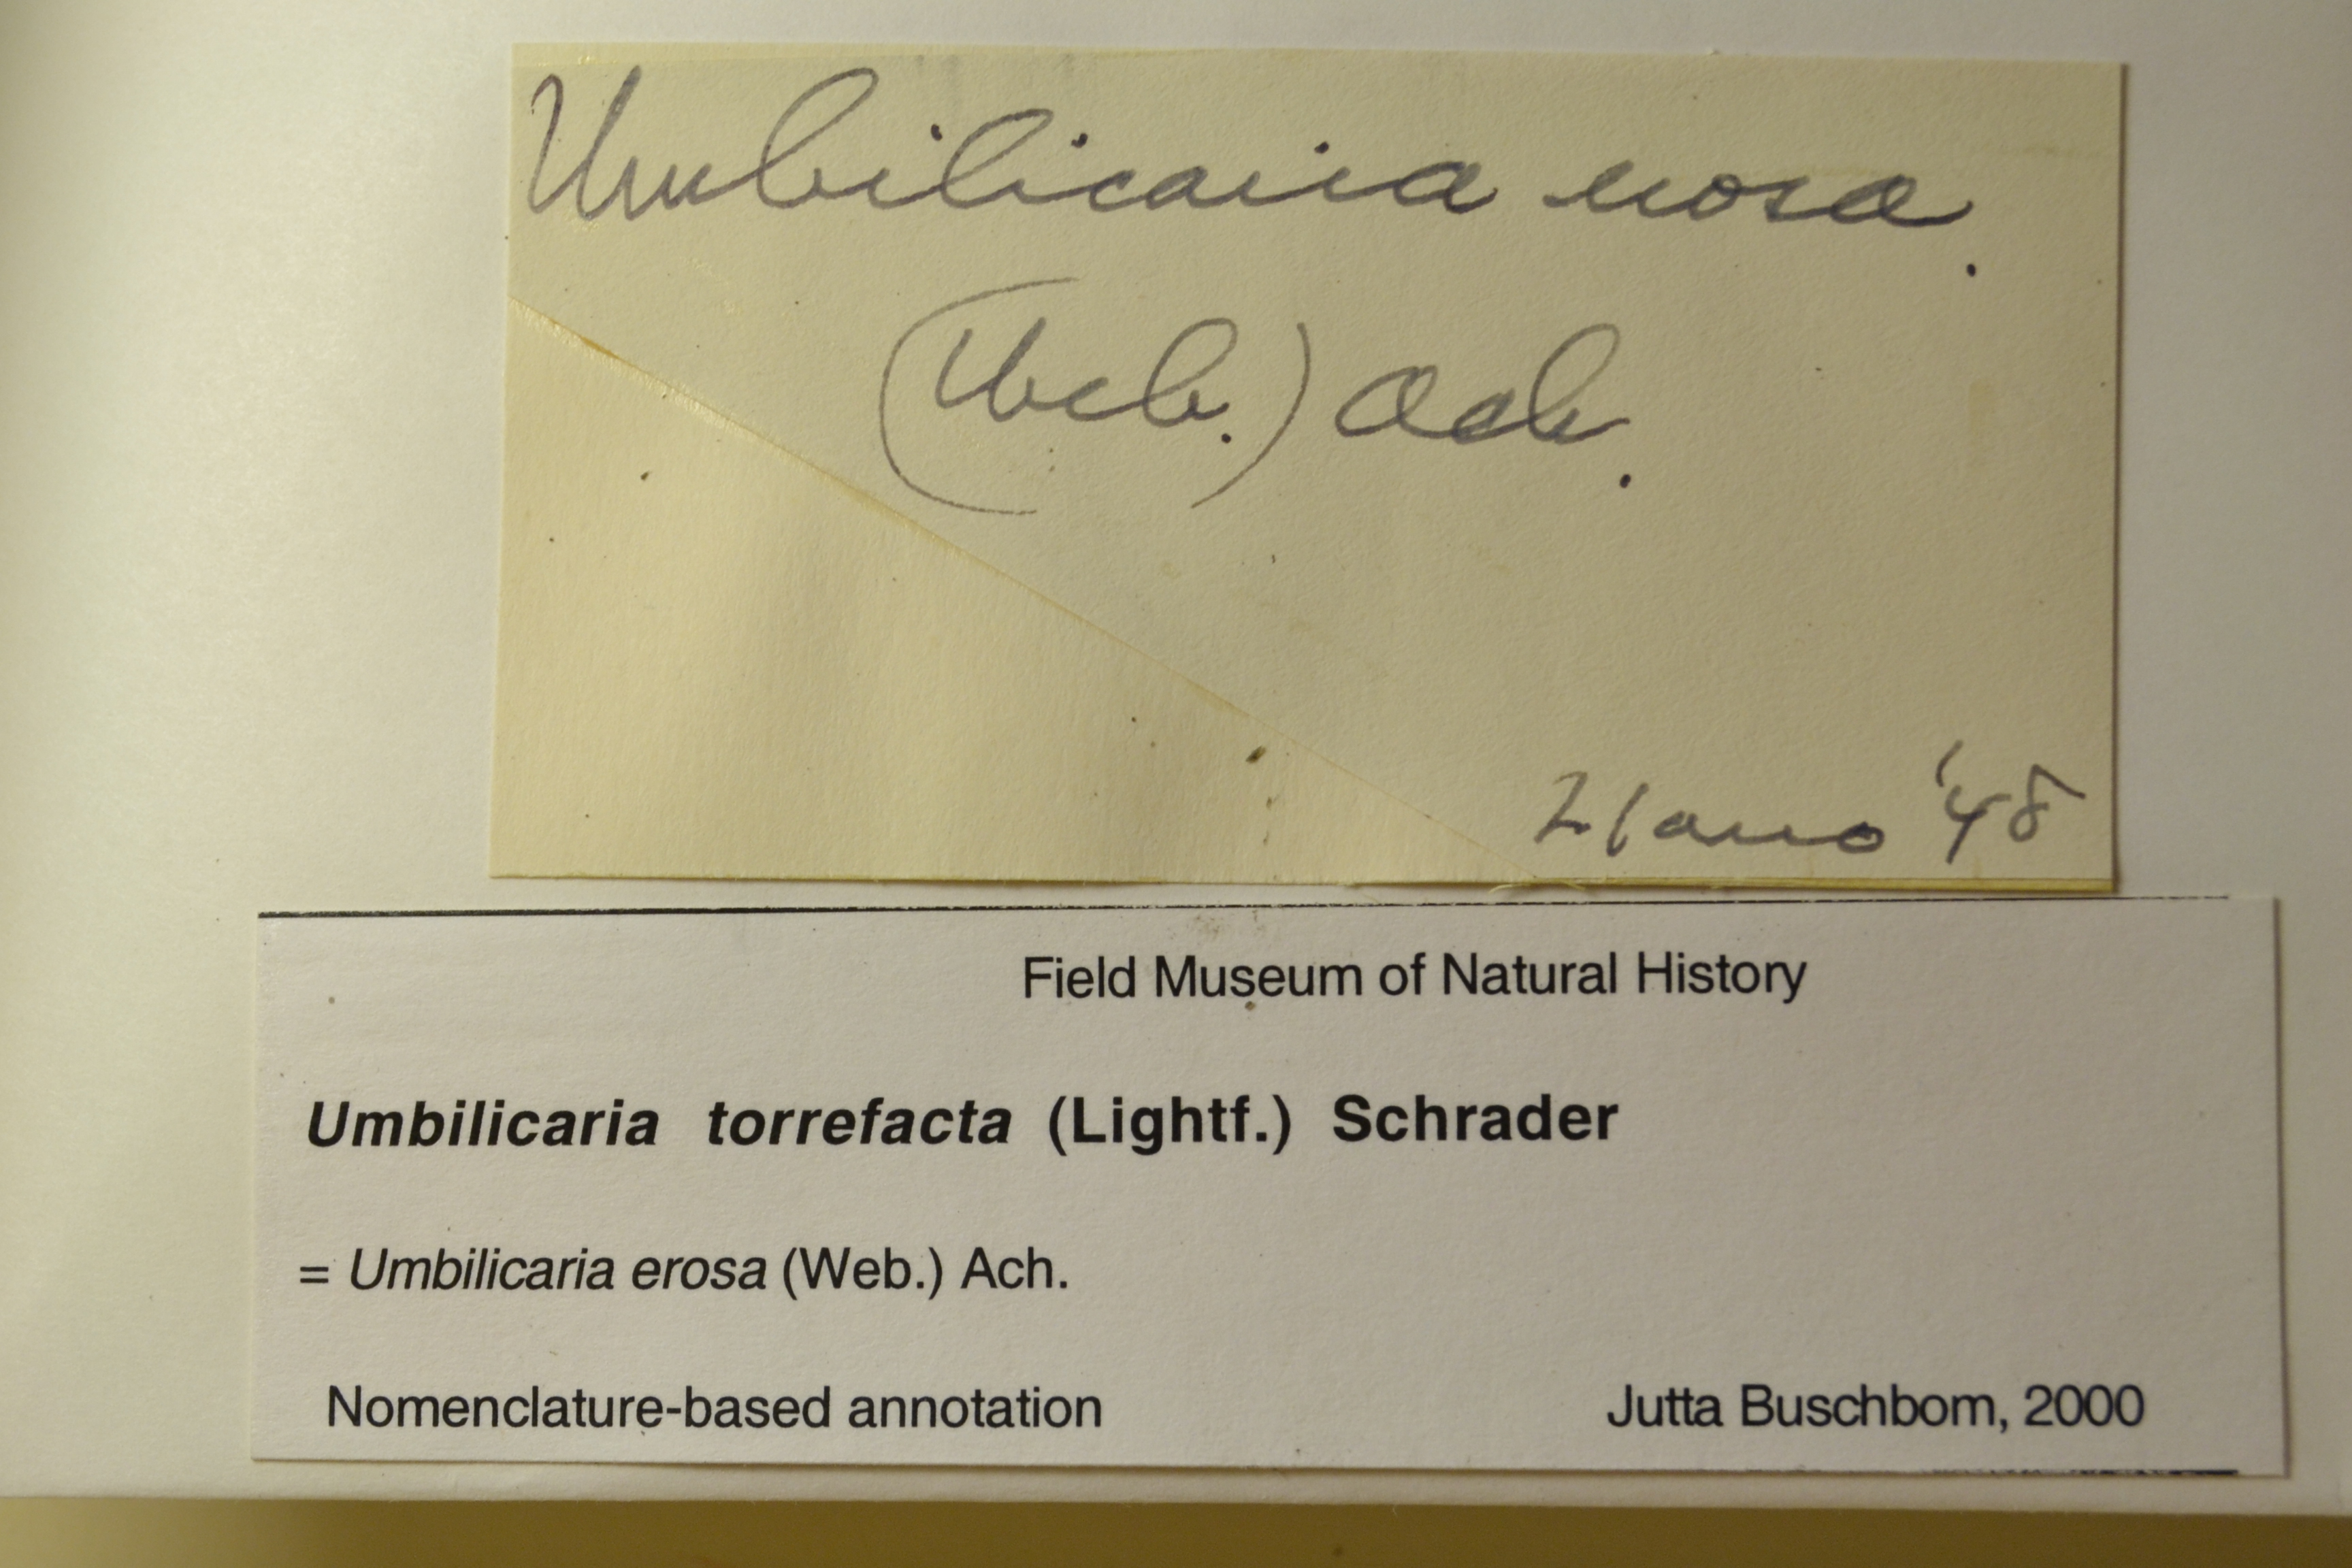 Umbilicaria erosa.
(Web.) Ach.
Llano '48
Field Museum of Natural History
Umbilicaria torrefacta (Lightf.) Schrader
= Umbilicaria erosa (Web.) Ach.
Nomenclature-based annotation
Jutta Buschbom, 2000